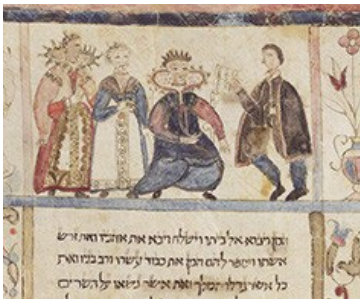 המן ויבוא אל ביתו וישלח ויבא את אהביו ואת זרש
אשתו ויספר להם המן את כבוד עשרו ורב בניו ואת
כל אשר גדלו המלך ואת אשר נשאו על השרים